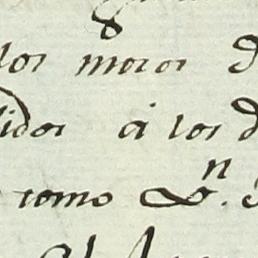 los moros
idos á los
como Dn.